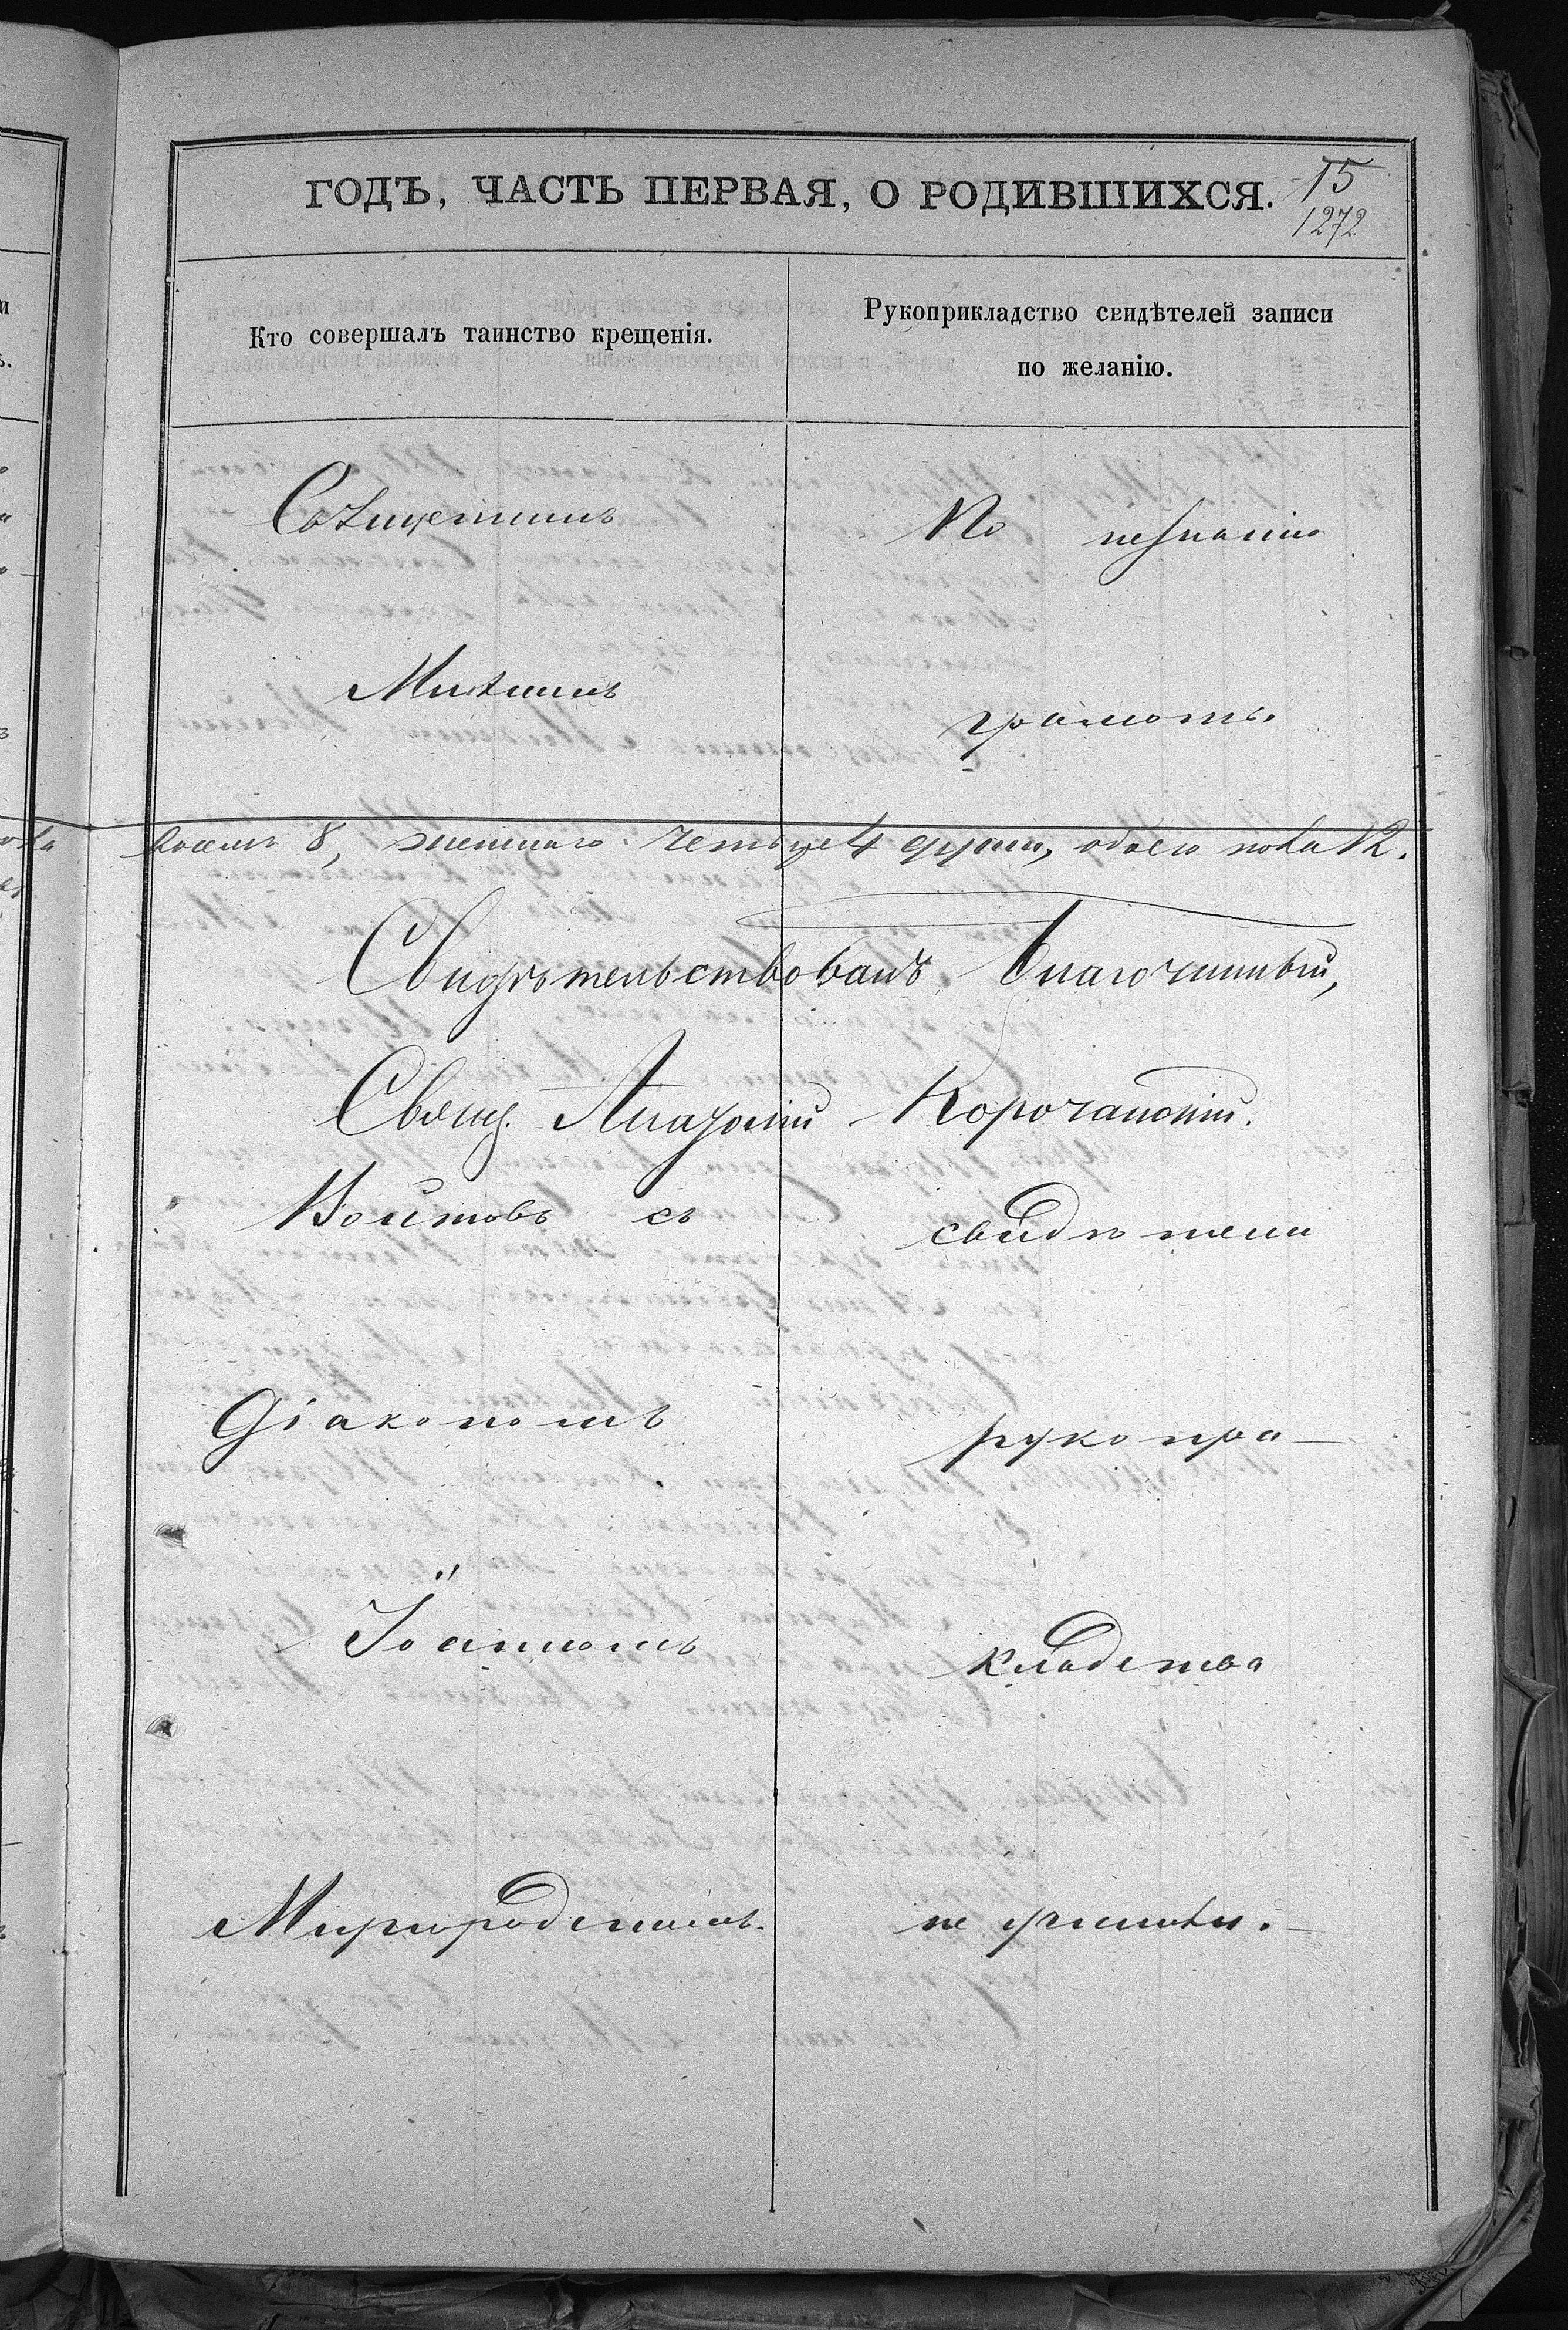 ГОДЪ, ЧАСТЬ ПЕРВАЯ, О РОДИВШИХСЯ.
15
1272
Кто совершалъ таинство крещенія.
Рукоприкладство свидѣтелей записи
по желанію.
Священникъ
По незнанію
грамоты.
восемь 8, женскаго четыре 4 души, обоего пола 12.
Свидѣтельствовалъ Благочинный,
Свящ. Анатолій Корочанскій.
Войтовъ съ
свидѣтели
Діакономъ
рукопри-
Іоанномъ
кладства
Миргородскимъ.
не учинили.